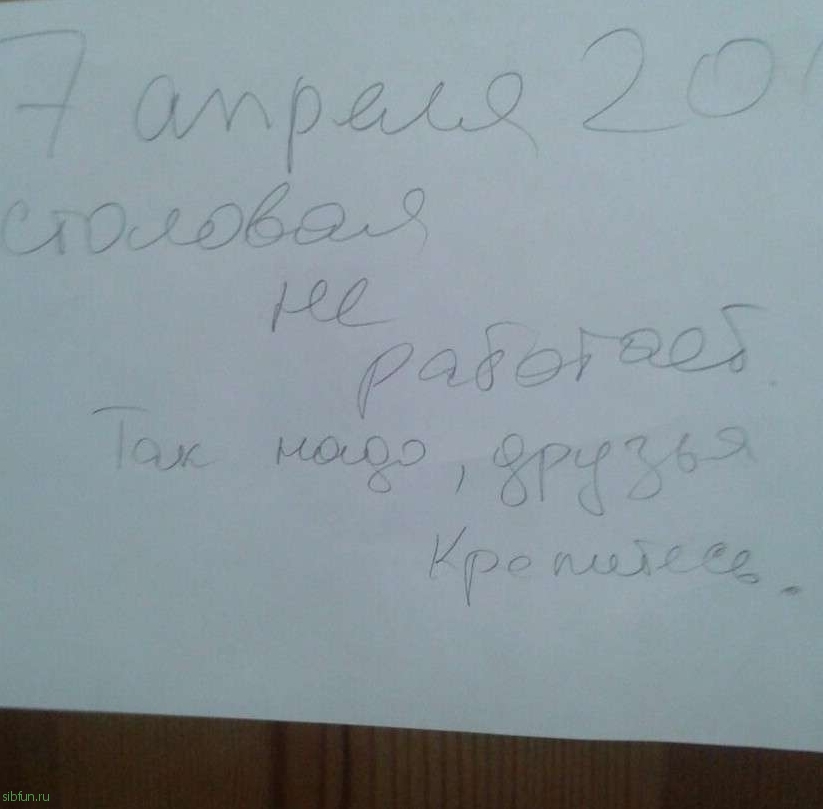 7 апреля 20
столовая
не
работает.
Так надо, друзья
Крепитесь.
sibfun.ru